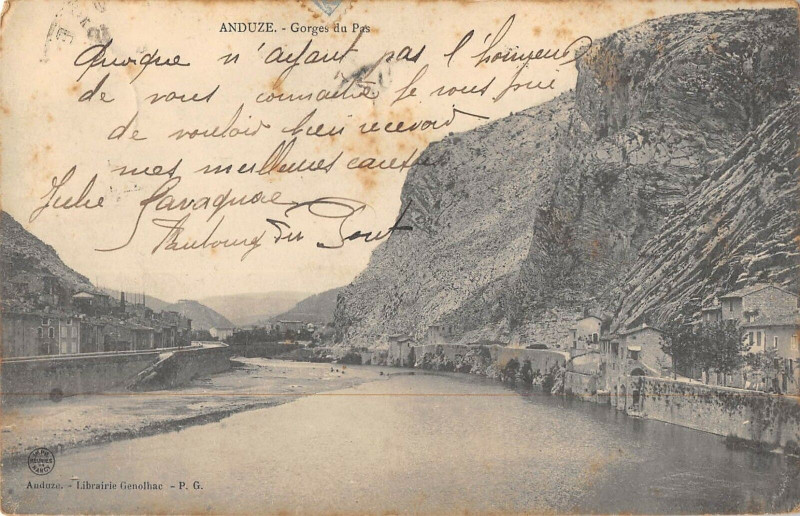 ANDUZE. - Gorges du Pas
Quoique n'ayant pas l'honneur
de vous connaître je vous prie
de vouloir bien recevoir
mes meilleures
Julie
Faubourg du Pont
IMP. REUNIES NANCY
Anduze. - Librairie Genolhac - P. G.